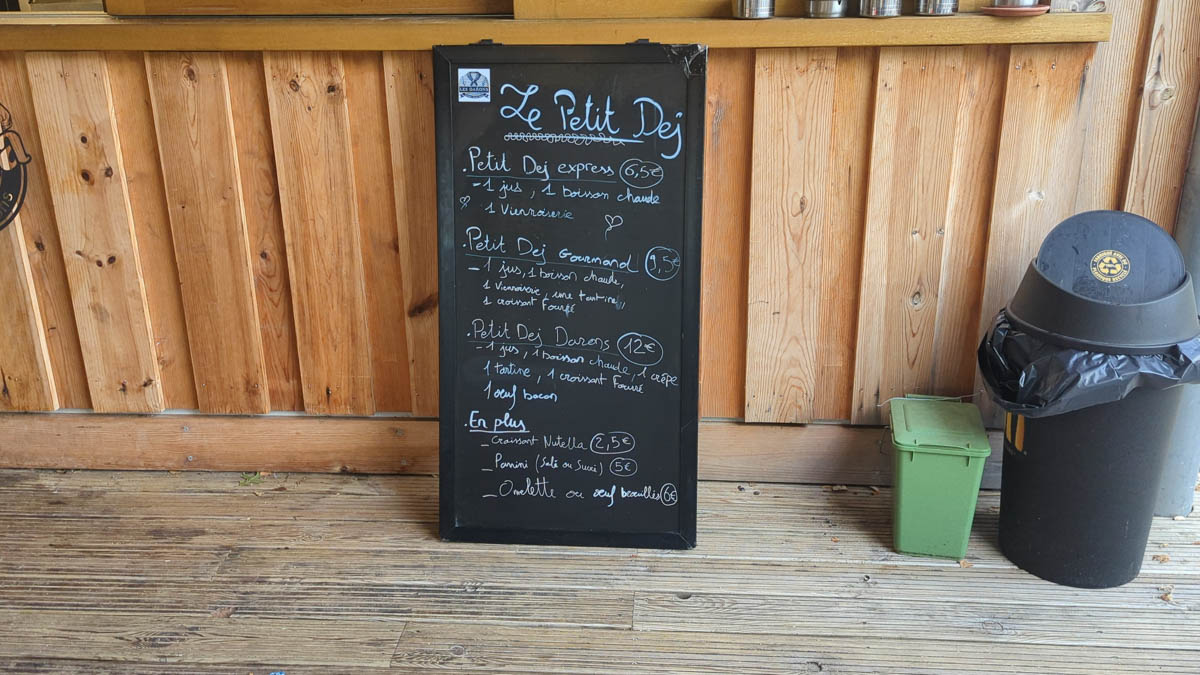 LES DARONS
Le Petit Dej
. Petit Dej express 6,5€
- 1 jus , 1 boisson chaude
1 Viennoiserie
. Petit Dej Gourmand 9,5€
- 1 jus, 1 boisson chaude,
1 Viennoiserie, une tartine,
1 croissant Fourré
. Petit Dej Darons 12€
- 1 jus, 1 boisson chaude, 1 crêpe
1 tartine, 1 croissant Fourré
1 œuf bacon
. En plus
- Croissant Nutella 2,5€
- Pannini (Salé ou Sucré) 5€
- Omelette ou œuf brouillés 6€